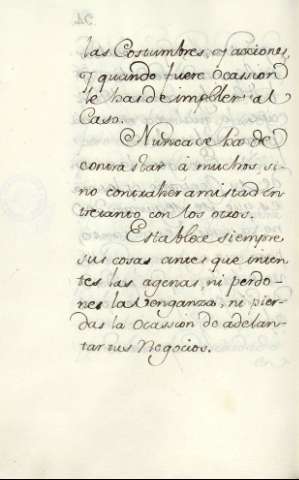 las Costumbres, y acciones,
y quando fuere ocassion
le has de impeler al
Caso.
Nunca se ha de
contrastar à muchos, si-
no contraher amistad en
tretanto con los otros.
Establece siempre
sus cosas antes que inten
tes las agenas, ni perdo-
nes la Venganza, ni pier-
das la ocassion de adelan-
tar tus Negocios.